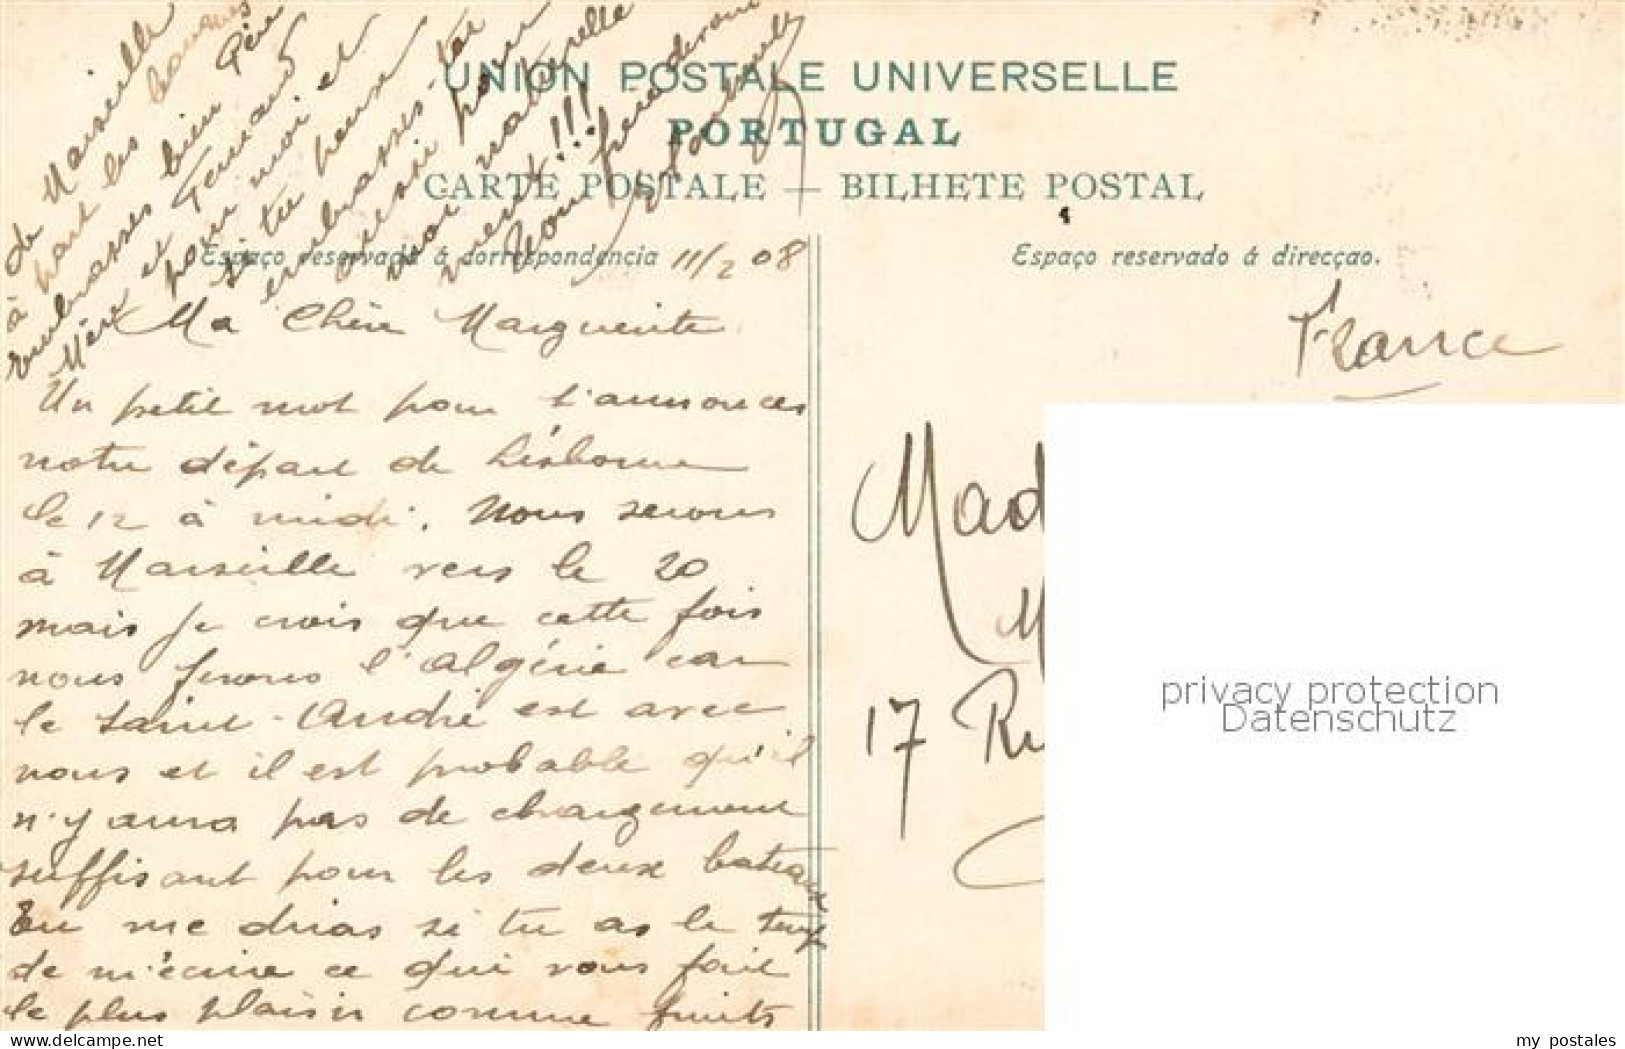 UNION POSTALE UNIVERSELLE
PORTUGAL
CARTE POSTALE — BILHETE POSTAL
Espaço reservado á correspondencia
11/2 08
Espaço reservado á direcçao.
Ma Chère Marguerite
Un petit mot pour t'annoncer
notre départ de Lisbonne
le 12 à midi. Nous serons
à Marseille vers le 20
mais je crois que cette fois
nous ferons l'Algérie car
le Saint-André est avec
nous et il est probable qu'il
n'y aura pas de chargement
suffisant pour les deux bateaux
Tu me diras si tu as le temps
de m'écrire ce qui vous fait
le plus plaisir comme fruits
de Marseille
à part les
embrasses bien Père
Mère et Fernand
pour moi et
si tu penses
embrasses-toi
aussi pour
moi naturelle
ment !!!
Ton frère
France
Mad
17 Ru
privacy protection
Datenschutz
delcampe.net
my_postales